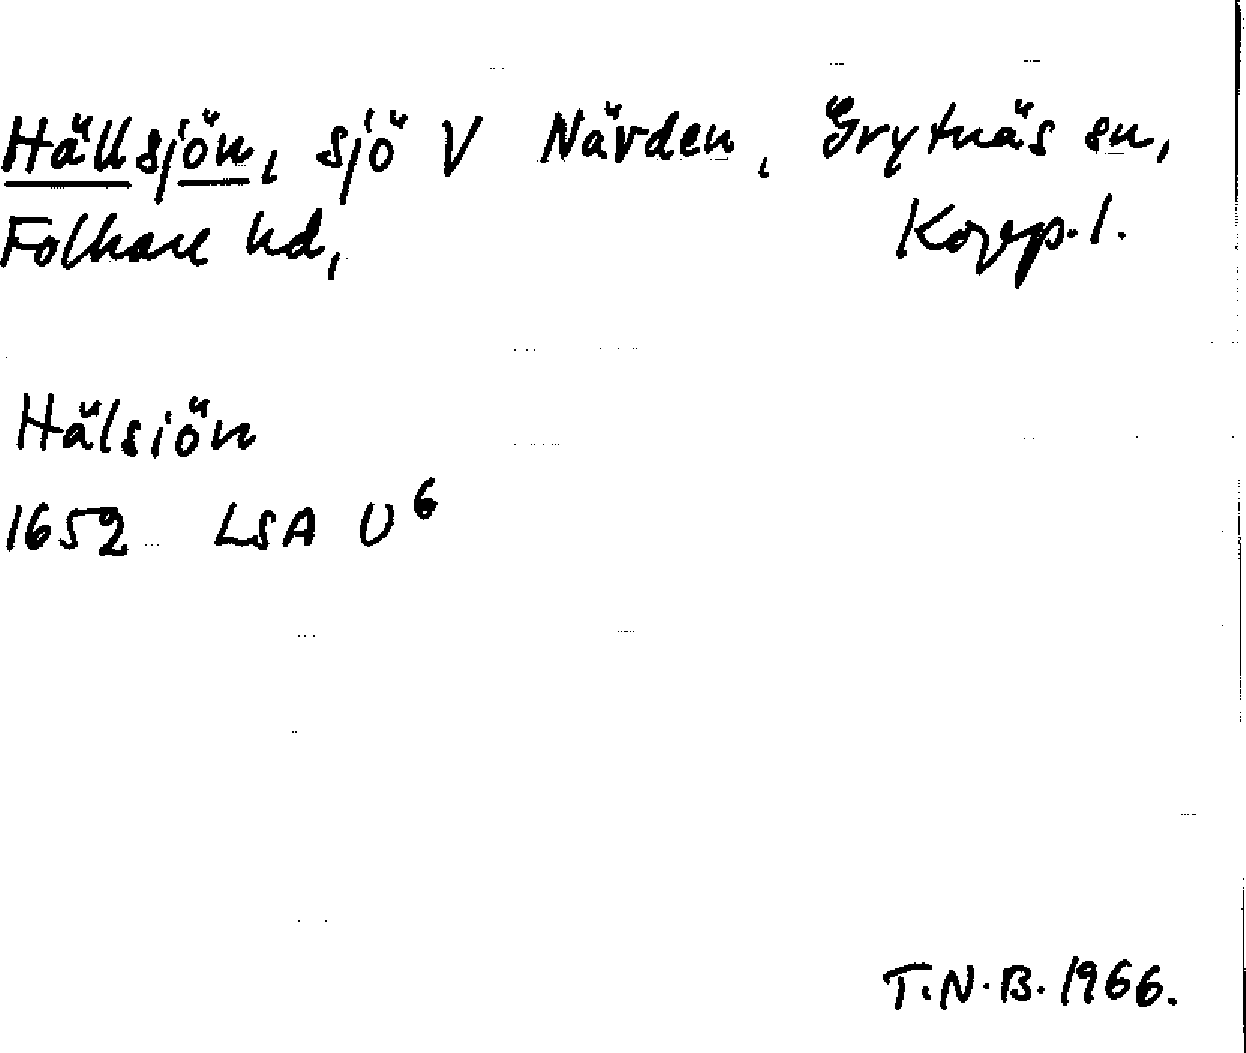 Hällsjön, sjö V Nävden, Grytnäs sn,
Folkare hd, Kopp. l.
Hälsiön
1652 LSA U⁶
T.N.B. 1966.